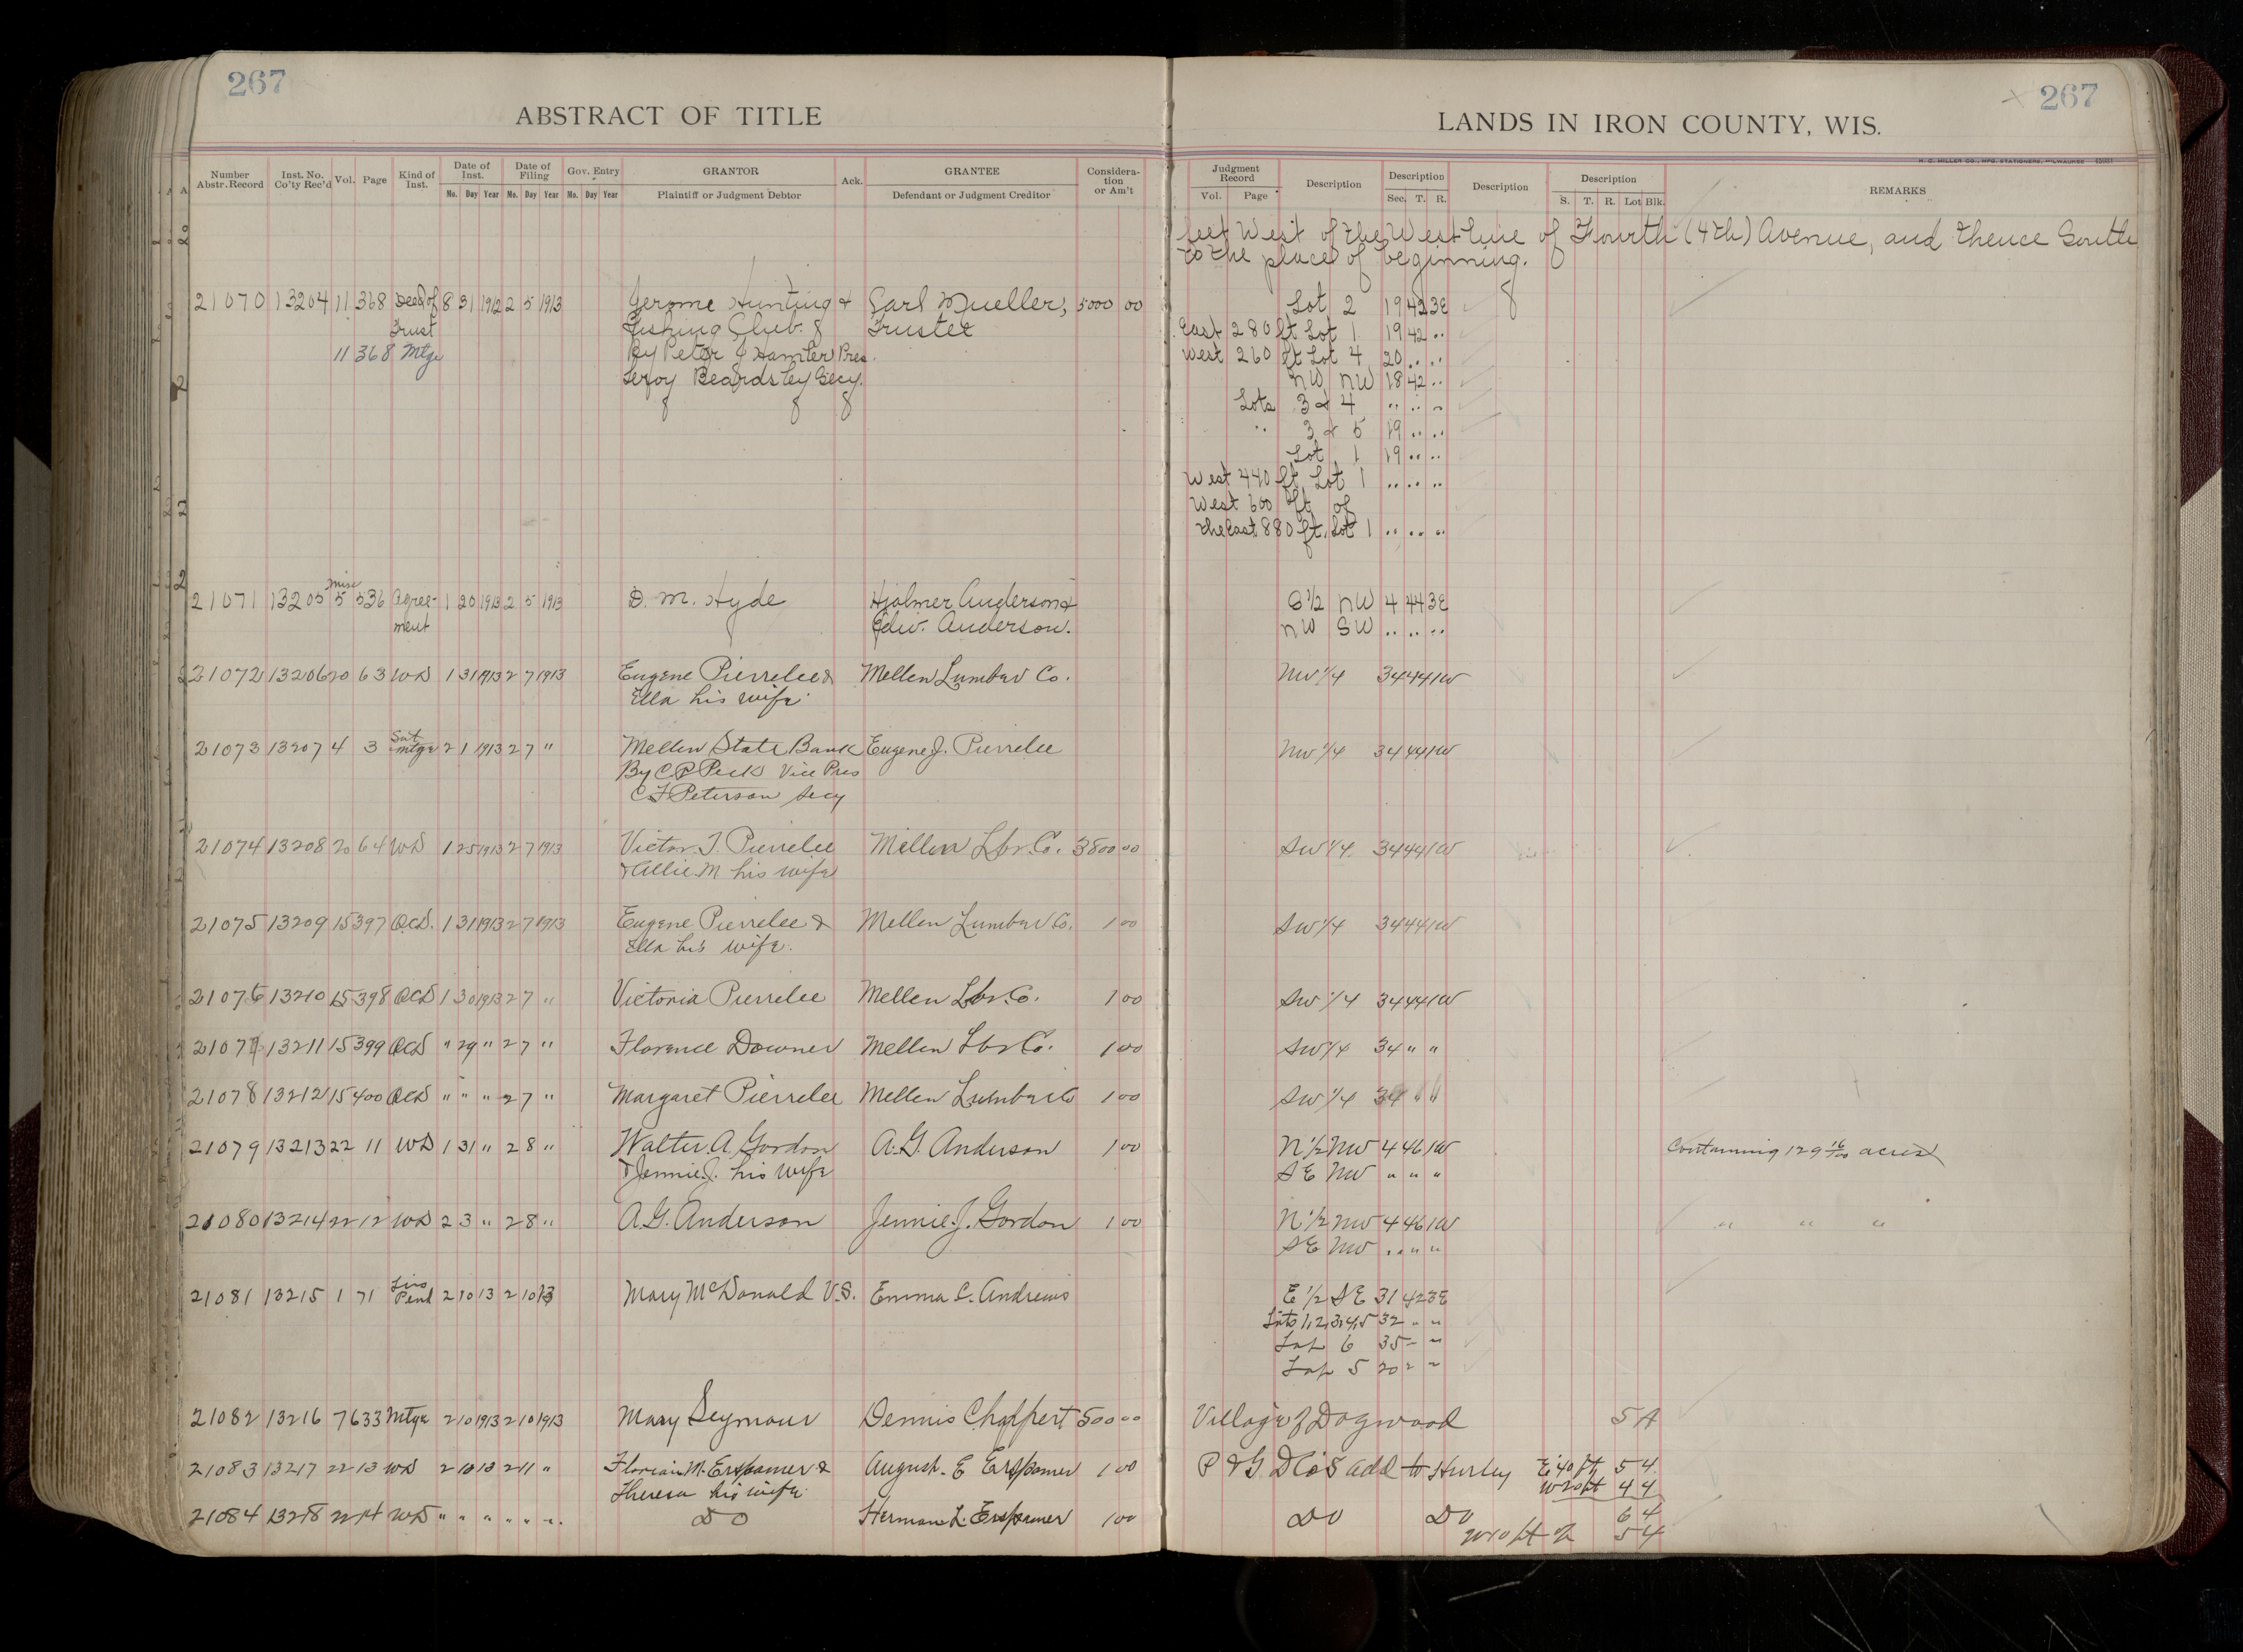 267
ABSTRACT OF TITLE
Number Abstr. Record Inst. No. Co'ty Rec'd Vol. Page Kind of Inst. Date of Inst. Date of Filing Gov. Entry GRANTOR Ack. GRANTEE Considera-tion or Am't
Mo. Day Year Mo. Day Year Mo. Day Year Plaintiff or Judgment Debtor Defendant or Judgment Creditor
267
LANDS IN IRON COUNTY, WIS.
H. C. MILLER CO., MFG. STATIONERS, MILWAUKEE
Judgment Record Description Description Description Description REMARKS
Vol. Page Sec. T. R. S. T. R. Lot Blk.
feet West of the West line of Fourth (4th) Avenue, and thence South
to the place of beginning.
21070 13204 11 368 Deed of 8 31 1912 2 5 1913 Jerome Hunting & Carl Mueller, 5000 00 Lot 2 19 42 3E
Trust Fishing Club. Trustee East 280 ft Lot 1 19 42 ..
11 368 Mtge By Peter J Hamter Pres. West 260 ft Lot 4 20 .. ..
Leroy Beardsley Secy. NW NW 18 42 ..
Lots 3 & 4 .. .. ..
.. 3 & 5 19 .. ..
Lot 1 19 .. ..
West 440 ft Lot 1 .. .. ..
West 600 ft of
the East 880 ft. Lot 1 .. .. ..
21071 13205 Misc 5 536 Agree- 1 20 1913 2 5 1913 D. M. Hyde Hjalmer Anderson & S 1/2 NW 4 44 3E
ment Edw. Anderson. NW SW .. .. ..
21072 13206 20 63 WD 1 31 1913 2 7 1913 Eugene Pierrelee & Mellen Lumber Co. NW 1/4 34 44 1W
Ella his wife
21073 13207 4 3 Sat Mtge 2 1 1913 2 7 " Mellen State Bank Eugene J. Pierrelee NW 1/4 34 44 1W
By C.P. Peck Vice Pres
C.F. Peterson Secy
21074 13208 20 64 WD 1 25 1913 2 7 1913 Victor J. Pierrelee Mellen Lbr. Co. 3800 00 SW 1/4 34 44 1W
& Allie M his wife
21075 13209 15 397 QCD. 1 31 1913 2 7 1913 Eugene Pierrelee & Mellen Lumber Co. 1 00 SW 1/4 34 44 1W
Ella his wife.
21076 13210 15 398 QCD 1 30 1913 2 7 " Victoria Pierrelee Mellen Lbr. Co. 1 00 SW 1/4 34 44 1W
21077 13211 15 399 QCD " 29 " 2 7 " Florence Downer Mellen Lbr Co. 1 00 SW 1/4 34 " "
21078 13212 15 400 QCD " " " 2 7 " Margaret Pierrelee Mellen Lumber Co 1 00 SW 1/4 34 " "
21079 13213 22 11 WD 1 31 " 2 8 " Walter A. Gordon A. G. Anderson 1 00 N 1/2 NW 4 46 1W Containing 129 16/100 acres
& Jennie J. his wife SE NW " " "
21080 13214 22 12 WD 2 3 " 2 8 " A. G. Anderson Jennie J. Gordon 1 00 N 1/2 NW 4 46 1W " " "
SE NW " " "
21081 13215 1 71 Lis Pend 2 10 13 2 10 13 Mary McDonald V.S. Emma C. Andrews E 1/2 SE 31 42 3E
Lots 1,2,3,4,5 32 " "
Lot 6 35 " "
Lot 5 20 " "
21082 13216 7 633 Mtge 2 10 1913 2 10 1913 Mary Seymour Dennis Chappert 500 00 Village of Dogwood 5 A
21083 13217 22 13 WD 2 10 13 2 11 " Florian M. Erspamer & August E Erspamer 1 00 P & G. D Co's Add to Hurley E 40 ft 5 4
Theresa his wife W 20 ft 4 4
21084 13218 22 14 WD " " " " " " DO Herman L. Erspamer 1 00 DO DO 6 4
W 10 ft of 5 4